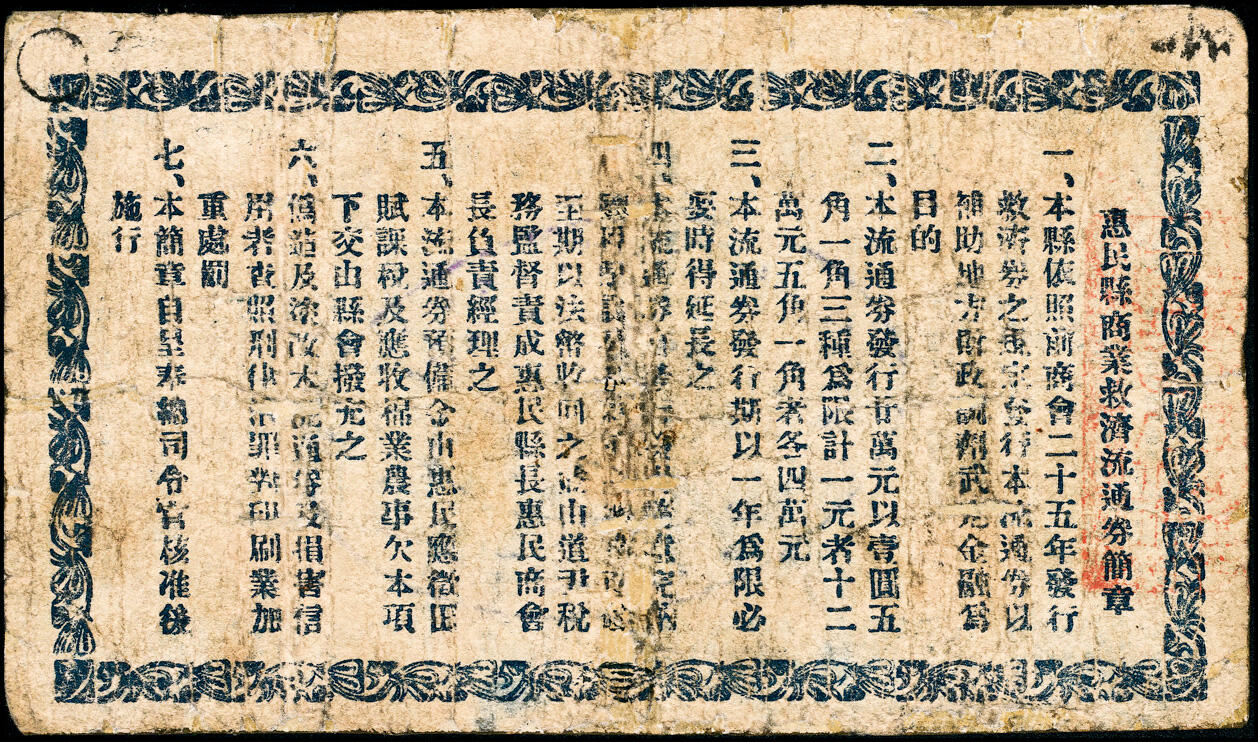 惠民縣商業救濟流通券簡章
一、本縣依照前商會二十五年發行
救濟券之規定發行本流通券以
補助地方財政調劑武定金融爲
目的
二、本流通券發行廿萬元以壹圓五
角一角三種爲限計一元者十二
萬元五角一角者各四萬元
三、本流通券發行期以一年爲限必
要時得延長之
四、本流通券
至期以法幣收回之並由道尹稅
務監督責成惠民縣長惠民商會
長負責經理之
五、本流通券預備金由惠民應徵田
賦課稅及應收棉業農事欠本項
下交由縣會撥充之
六、僞造及塗改本流通券及損害信
用者查照刑律治罪對印刷業加
重處罰
七、本簡章自呈奉總司令官核准後
施行